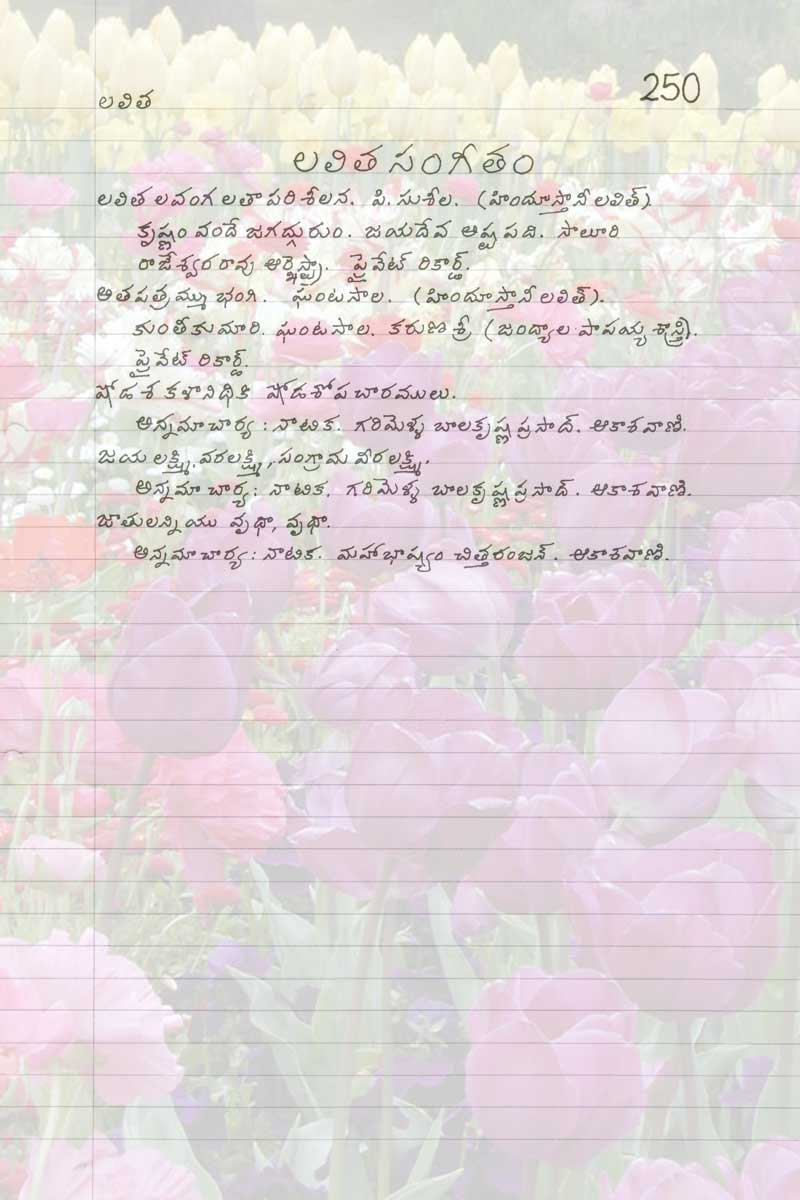 250
లలిత
లలిత సంగీతం
లలిత లవంగ లతా పరిశీలన. పి. సుశీల. (హిందూస్తానీ లలిత్).
కృష్ణం వందే జగద్గురుం. జయదేవ అష్టపది. సాలూరి
రాజేశ్వరరావు ఆర్కెస్ట్రా. ప్రైవేట్ రికార్డ్.
ఆతపత్రమ్ము భంగి. ఘంటసాల. (హిందూస్తానీ లలిత్).
కుంతీకుమారి. ఘంటసాల. కరుణశ్రీ (జంధ్యాల పాపయ్య శాస్త్రి).
ప్రైవేట్ రికార్డ్.
షోడశ కళానిధికి షోడశోపచారములు.
అన్నమాచార్య : నాటిక. గరిమెళ్ళ బాలకృష్ణ ప్రసాద్. ఆకాశవాణి.
జయ లక్ష్మి, వరలక్ష్మి, సంగ్రామ వీరలక్ష్మి.
అన్నమాచార్య : నాటిక. గరిమెళ్ళ బాలకృష్ణ ప్రసాద్. ఆకాశవాణి.
జాతులన్నియు వృథా, వృథా.
అన్నమాచార్య : నాటిక. మహాభాష్యం చిత్తరంజన్. ఆకాశవాణి.